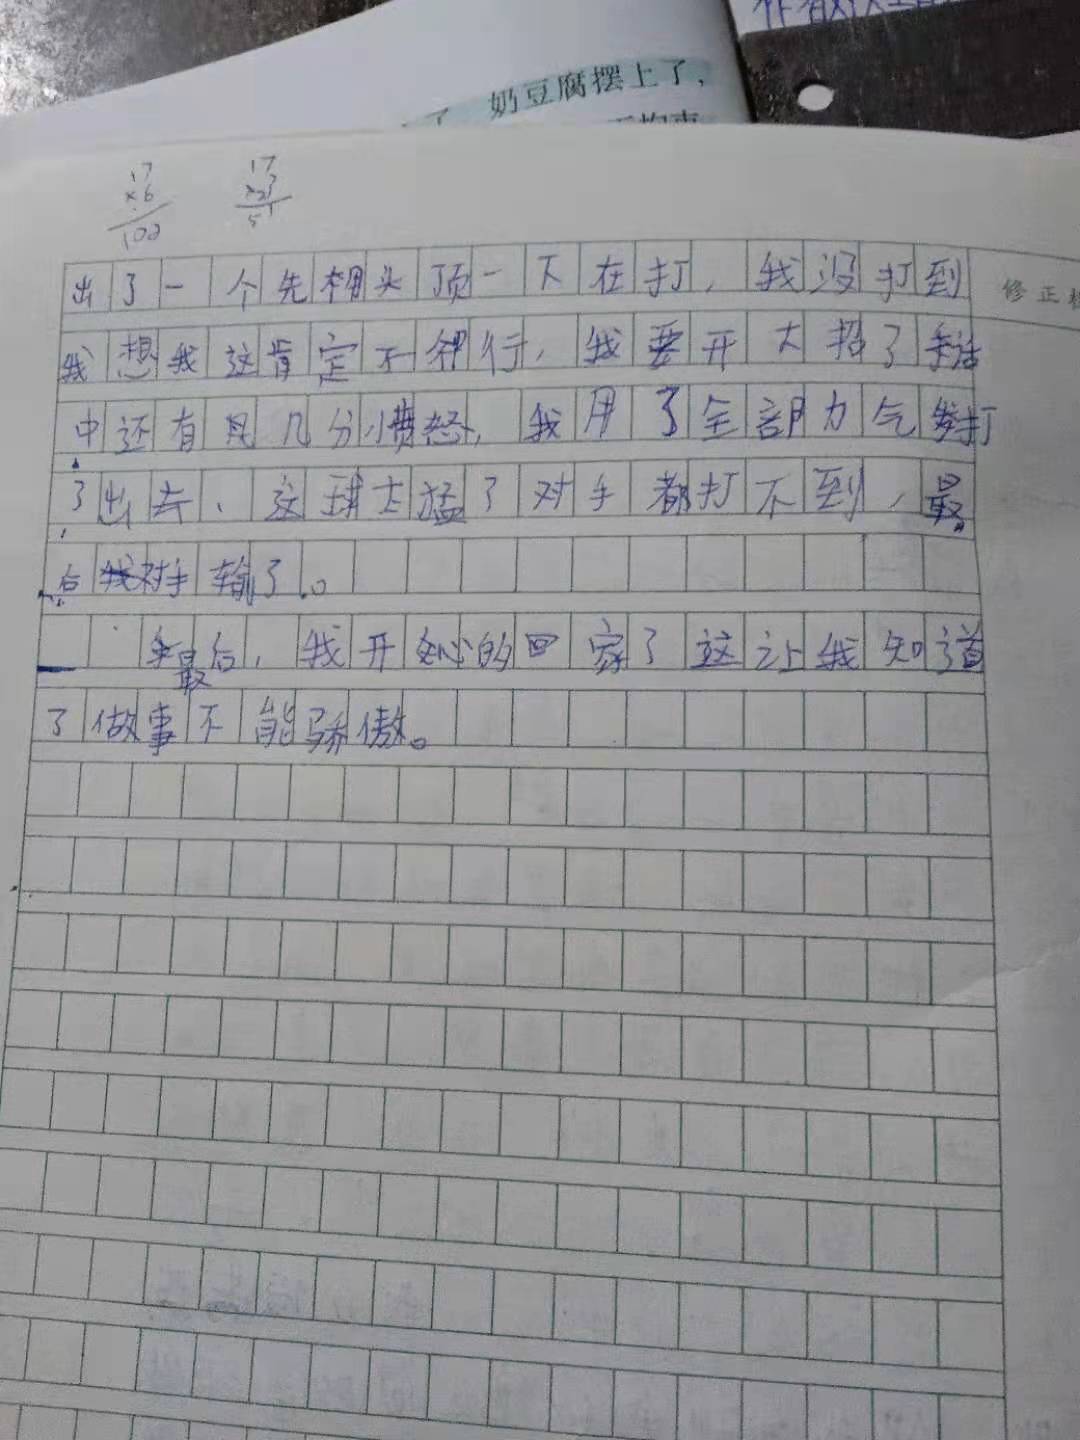 奶豆腐摆上了，
17
×6
102
17
51
修正
出了一个先棚头顶一下在打，我没打到
我想我这肯定不行，我要开大招了手活
中还有具几分愤怒，我用了全部力气打
了出去、这球太猛了对手都打不到，最
后对手输了。
最后，我开心的回家了这让我知道
了做事不能骄傲。